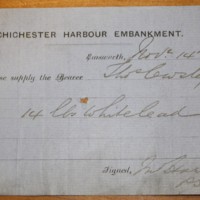 CHICHESTER HARBOUR EMBANKMENT.
Emsworth, Novr 14
se supply the Bearer Thos
14 lbs White lead
Signed,